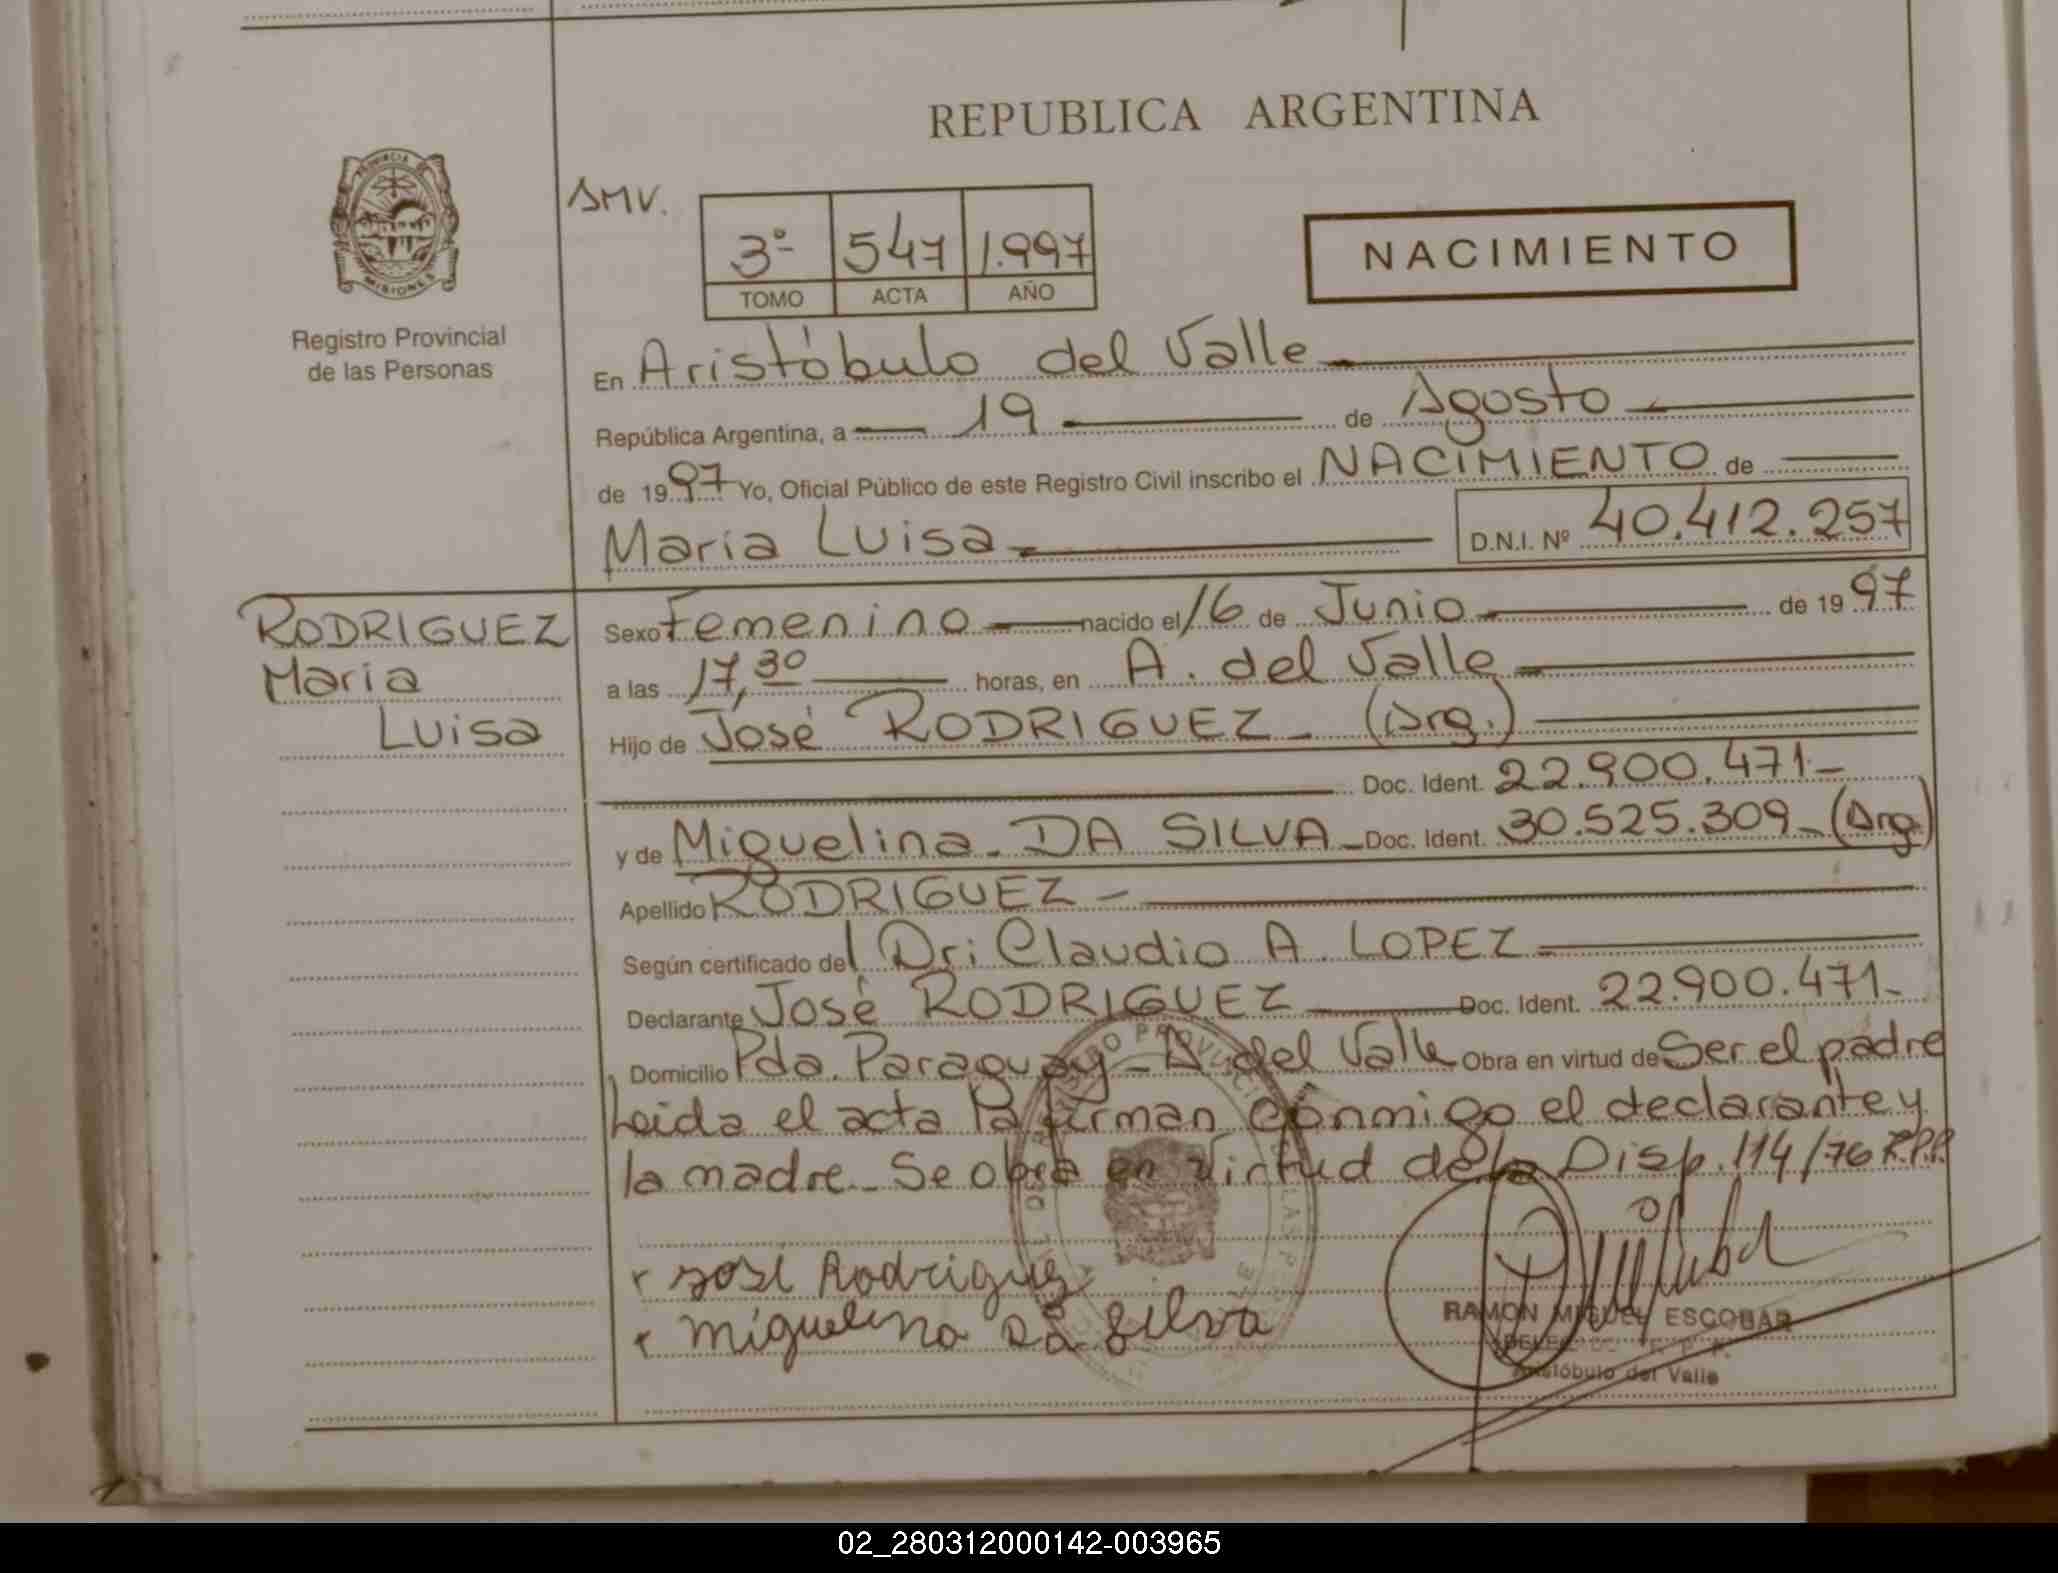 REPUBLICA ARGENTINA
PROVINCIA
MISIONES
Registro Provincial
de las Personas
SMV.
3º 547 1.997
TOMO ACTA AÑO
NACIMIENTO
En Aristóbulo del Valle
República Argentina, a 19 de Agosto
de 1997 Yo, Oficial Público de este Registro Civil inscribo el NACIMIENTO de
María Luisa D.N.I. Nº 40.412.257
RODRIGUEZ
María
Luisa
Sexo Femenino nacido el 16 de Junio de 1997
a las 17,30 horas, en A. del Valle
Hijo de José RODRIGUEZ (Arg.)
Doc. Ident. 22.900.471
y de Miguelina DA SILVA Doc. Ident. 30.525.309 (Arg.)
Apellido RODRIGUEZ
Según certificado del Dr: Claudio A. LOPEZ
Declarante José RODRIGUEZ Doc. Ident. 22.900.471
Domicilio Pda. Paraguay - A. del Valle Obra en virtud de Ser el padre
Leida el acta la firman conmigo el declarante y
la madre. Se obra en virtud de la Disp. 114/76 R.P.P.
José Rodriguez
Miguelina Da Silva
RAMON MIGUEL ESCOBAR
DELEGADO R.P.P.
Aristóbulo del Valle
02_280312000142-003965